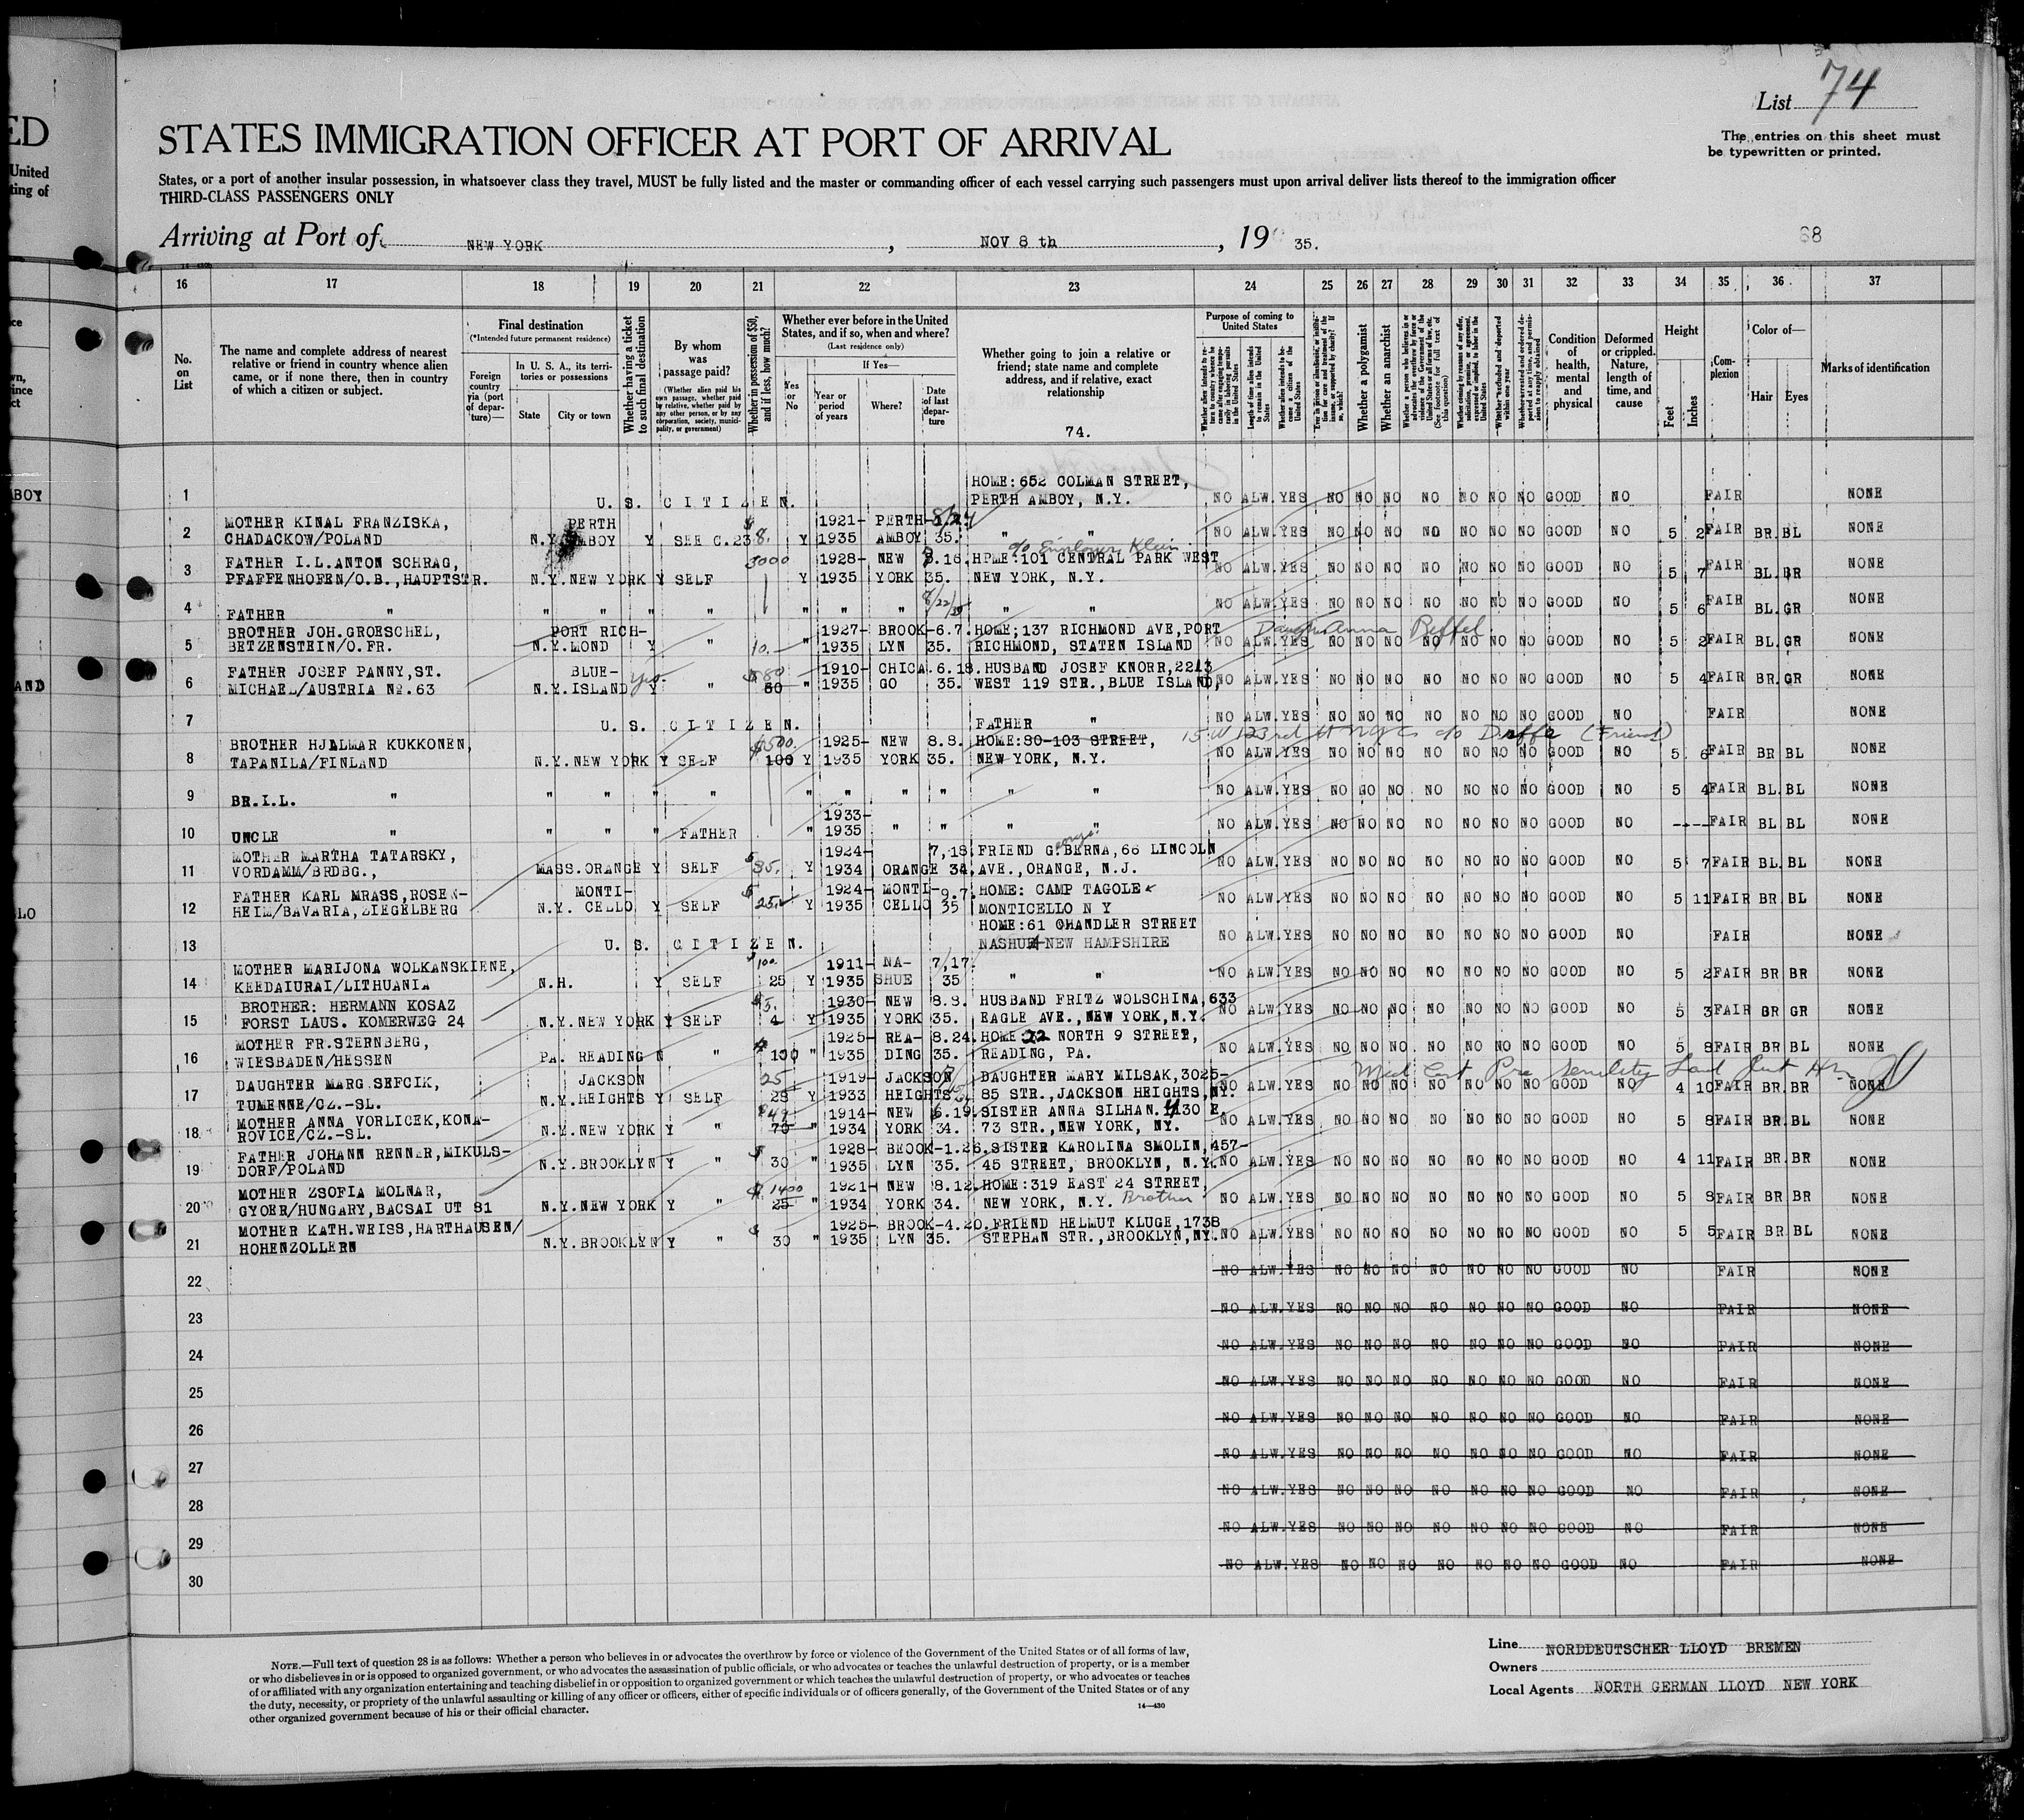 ED
United
ting of
List 74
The entries on this sheet must
be typewritten or printed.
STATES IMMIGRATION OFFICER AT PORT OF ARRIVAL
States, or a port of another insular possession, in whatsoever class they travel, MUST be fully listed and the master or commanding officer of each vessel carrying such passengers must upon arrival deliver lists thereof to the immigration officer
THIRD-CLASS PASSENGERS ONLY
Arriving at Port of NEW YORK, NOV 8 th, 19 35.
68
16 17 18 19 20 21 22 23 24 25 26 27 28 29 30 31 32 33 34 35 36 37
No. on List
The name and complete address of nearest relative or friend in country whence alien came, or if none there, then in country of which a citizen or subject.
Final destination
(*Intended future permanent residence)
Foreign country via (port of departure)—
In U. S. A., its territories or possessions
State
City or town
Whether having a ticket to such final destination
By whom was passage paid?
(Whether alien paid his own passage, whether paid by relative, whether paid by any other person, or by any corporation, society, municipality, or government)
Whether in possession of $50, and if less, how much?
Whether ever before in the United States, and if so, when and where?
(Last residence only)
Yes or No
If Yes—
Year or period of years
Where?
Date of last departure
Whether going to join a relative or friend; state name and complete address, and if relative, exact relationship
74.
Purpose of coming to United States
Length of time alien intends to remain in the United States
Whether alien intends to become a citizen of the United States
Whether a polygamist
Whether an anarchist
(See footnote for full text of this question)
Condition of health, mental and physical
Deformed or crippled. Nature, length of time, and cause
Height
Feet
Inches
Complexion
Color of—
Hair
Eyes
Marks of identification
HOME: 652 COLMAN STREET,
1 U. S. CITIZEN. PERTH AMBOY, N.Y. NO ALW. YES NO NO NO NO NO NO NO GOOD NO FAIR NONE
MOTHER KINAL FRANZISKA, PERTH 1921- PERTH-
2 CHADACKOW/POLAND N.Y. AMBOY Y SEE C.23 8. Y 1935 AMBOY 35. " " NO ALW. YES NO NO NO NO NO NO NO GOOD NO 5 2 FAIR BR. BL NONE
FATHER I.L. ANTON SCHRAG, 3000 1928- NEW 8.16. HPME: 101 CENTRAL PARK WEST
3 PFAFFENHOFEN/O.B., HAUPTSTR. N.Y. NEW YORK Y SELF Y 1935 YORK 35. NEW YORK, N.Y. NO ALW. YES NO NO NO NO NO NO NO GOOD NO 5 7 FAIR BL. BR NONE
4 FATHER " " " " " " " " 8/22/35 " " NO ALW. YES NO NO NO NO NO NO NO GOOD NO 5 6 FAIR BL. GR NONE
BROTHER JOH. GROESCHEL, PORT RICH- 1927- BROOK- 6.7. HOME; 137 RICHMOND AVE, PORT
5 BETZENSTEIN/O.FR. N.Y. MOND Y " 10. " 1935 LYN 35. RICHMOND, STATEN ISLAND NO ALW. YES NO NO NO NO NO NO NO GOOD NO 5 2 FAIR BL. GR NONE
FATHER JOSEF PANNY, ST. BLUE- yes $80 1910- CHICA. 6.18. HUSBAND JOSEF KNORR, 2213
6 MICHAEL/AUSTRIA No. 63 N.Y. ISLAND Y " 80 " 1935 GO 35. WEST 119 STR., BLUE ISLAND, NO ALW. YES NO NO NO NO NO NO NO GOOD NO 5 4 FAIR BR. GR NONE
7 U. S. CITIZEN. FATHER " NO ALW. YES NO NO NO NO NO NO NO GOOD NO FAIR NONE
BROTHER HJALMAR KUKKONEN, $500. 1925- NEW 8.8. HOME: 80-103 STREET, 15 W 123rd St NYC c/o (Friend)
8 TAPANILA/FINLAND N.Y. NEW YORK Y SELF 100 Y 1935 YORK 35. NEW YORK, N.Y. NO ALW. YES NO NO NO NO NO NO NO GOOD NO 5 6 FAIR BR BL NONE
9 BR.I.L. " " " " " " " " " " " NO ALW. YES NO GO NO NO NO NO NO GOOD NO 5 4 FAIR BL. BL NONE
1933-
10 UNCLE " " " " FATHER " 1935 " " " " NO ALW. YES NO NO NO NO NO NO NO GOOD NO ---- FAIR BL BL NONE
MOTHER MARTHA TATARSKY, 1924- 7,18. FRIEND G. BIRNA, 66 LINCOLN
11 VORDAMM/BRDBG., MASS. ORANGE Y SELF $35. Y 1934 ORANGE 34. AVE., ORANGE, N.J. NO ALW. YES NO NO NO NO NO NO NO GOOD NO 5 7 FAIR BL. BL NONE
FATHER KARL MRASS, ROSEN- MONTI- 1924- MONTI- 9.7. HOME: CAMP TAGOLE
12 HEIM/BAVARIA, ZIEGELBERG N.Y. CELLO Y SELF $25. Y 1935 CELLO 35 MONTICELLO N Y NO ALW. YES NO NO NO NO NO NO NO GOOD NO 5 11 FAIR BR. BL NONE
HOME: 61 CHANDLER STREET
13 U. S. CITIZEN. NASHUA NEW HAMPSHIRE NO ALW. YES NO NO NO NO NO NO NO GOOD NO FAIR NONE
MOTHER MARIJONA WOLKANSKIENE, $100. 1911- NA- 7,17.
14 KEEDAIURAI/LITHUANIA N.H. Y SELF 25 Y 1935 SHUE 35 " " NO ALW. YES NO NO NO NO NO NO NO GOOD NO 5 2 FAIR BR. BR NONE
BROTHER: HERMANN KOSAZ $5. 1930- NEW 8.8. HUSBAND FRITZ WOLSCHINA, 633
15 FORST LAUS. KOMERWEG 24 N.Y. NEW YORK Y SELF 4 Y 1935 YORK 35. EAGLE AVE., NEW YORK, N.Y. NO ALW. YES NO NO NO NO NO NO NO GOOD NO 5 3 FAIR BR GR NONE
MOTHER FR. STERNBERG, 1925- REA- 8.24. HOME: 22 NORTH 9 STREET,
16 WIESBADEN/HESSEN PA. READING N " $100 " 1935 DING 35. READING, PA. NO ALW. YES NO NO NO NO NO NO NO GOOD NO 5 8 FAIR BR BL NONE
DAUGHTER MARG. SEFCIK, JACKSON 25 1919- JACKSON DAUGHTER MARY MILSAK, 3025-
Med Cert Pre Senility
17 TUMENNE/CZ.-SL. N.Y. HEIGHTS Y SELF 25 Y 1933 HEIGHTS 85 STR., JACKSON HEIGHTS, NY. NO ALW. YES NO NO NO NO NO NO NO GOOD NO 4 10 FAIR BR. BR NONE
MOTHER ANNA VORLICEK, KONA- $49 1914- NEW 6.19. SISTER ANNA SILHAN. 430 E.
18 ROVICE/CZ.-SL. N.Y. NEW YORK Y " 70 " 1934 YORK 34. 73 STR., NEW YORK, NY. NO ALW. YES NO NO NO NO NO NO NO GOOD NO 5 8 FAIR BR. BL NONE
FATHER JOHANN RENNER, MIKULS- 1928- BROOK- 1.26. SISTER KAROLINA SMOLIN, 457-
19 DORF/POLAND N.Y. BROOKLYN Y " $30 " 1935 LYN 35. 45 STREET, BROOKLYN, N.Y. NO ALW. YES NO NO NO NO NO NO NO GOOD NO 4 11 FAIR BR. BR NONE
MOTHER ZSOFIA MOLNAR, $1400 1921- NEW 8.12. HOME: 319 EAST 24 STREET,
20 GYOER/HUNGARY, BACSAI UT 81 N.Y. NEW YORK Y " 25 " 1934 YORK 34. NEW YORK, N.Y. Brother NO ALW. YES NO NO NO NO NO NO NO GOOD NO 5 8 FAIR BR BR NONE
MOTHER KATH. WEISS, HARTHAUSEN/ 1925- BROOK- 4.20. FRIEND HELLUT KLUGE, 1738
21 HOHENZOLLERN N.Y. BROOKLYN Y " $30 " 1935 LYN 35. STEPHAN STR., BROOKLYN, NY. NO ALW. YES NO NO NO NO NO NO NO GOOD NO 5 5 FAIR BR BL NONE
22 NO ALW. YES NO NO NO NO NO NO NO GOOD NO FAIR NONE
23 NO ALW. YES NO NO NO NO NO NO NO GOOD NO FAIR NONE
24 NO ALW. YES NO NO NO NO NO NO NO GOOD NO FAIR NONE
25 NO ALW. YES NO NO NO NO NO NO NO GOOD NO FAIR NONE
26 NO ALW. YES NO NO NO NO NO NO NO GOOD NO FAIR NONE
27 NO ALW. YES NO NO NO NO NO NO NO GOOD NO FAIR NONE
28 NO ALW. YES NO NO NO NO NO NO NO GOOD NO FAIR NONE
29 NO ALW. YES NO NO NO NO NO NO NO GOOD NO FAIR NONE
30 NO ALW. YES NO NO NO NO NO NO NO GOOD NO FAIR NONE
NOTE.—Full text of question 28 is as follows: Whether a person who believes in or advocates the overthrow by force or violence of the Government of the United States or of all forms of law,
or who disbelieves in or is opposed to organized government, or who advocates the assassination of public officials, or who advocates or teaches the unlawful destruction of property, or is a member
of or affiliated with any organization entertaining and teaching disbelief in or opposition to organized government or which teaches the unlawful destruction of property, or who advocates or teaches
the duty, necessity, or propriety of the unlawful assaulting or killing of any officer or officers, either of specific individuals or of officers generally, of the Government of the United States or of any
other organized government because of his or their official character.
14—430
Line NORDDEUTSCHER LLOYD BREMEN
Owners
Local Agents NORTH GERMAN LLOYD NEW YORK